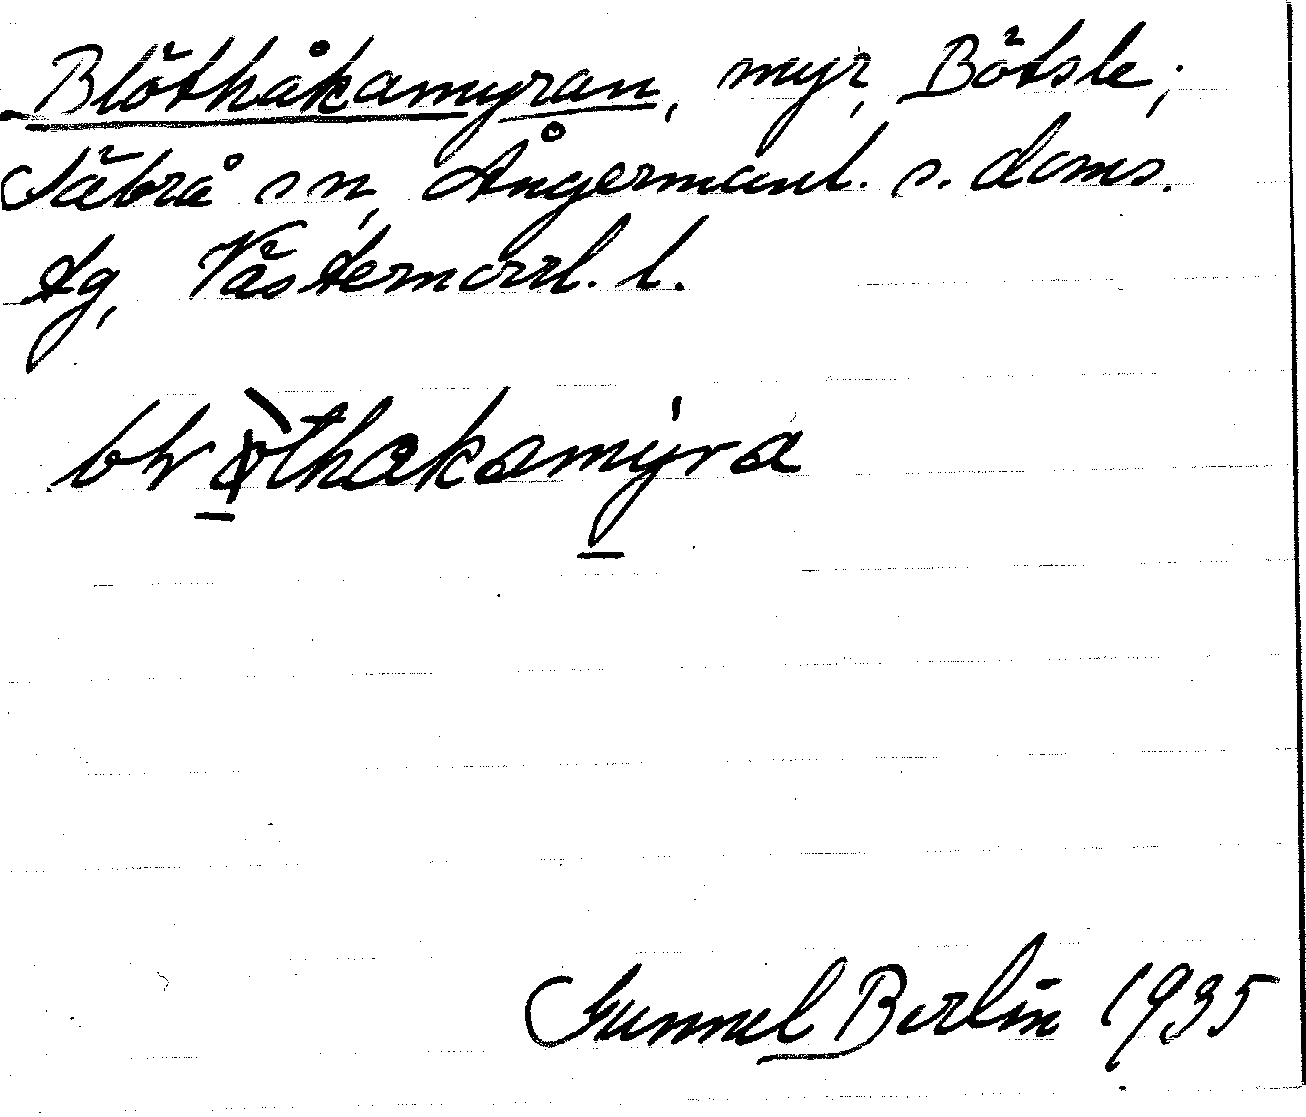 Blöthåkamyran, myr, Bötsle,
Säbrå sn, Ångermanl. s. doms.
tg, Västernorrl. l.
Gunnel Berlin 1935